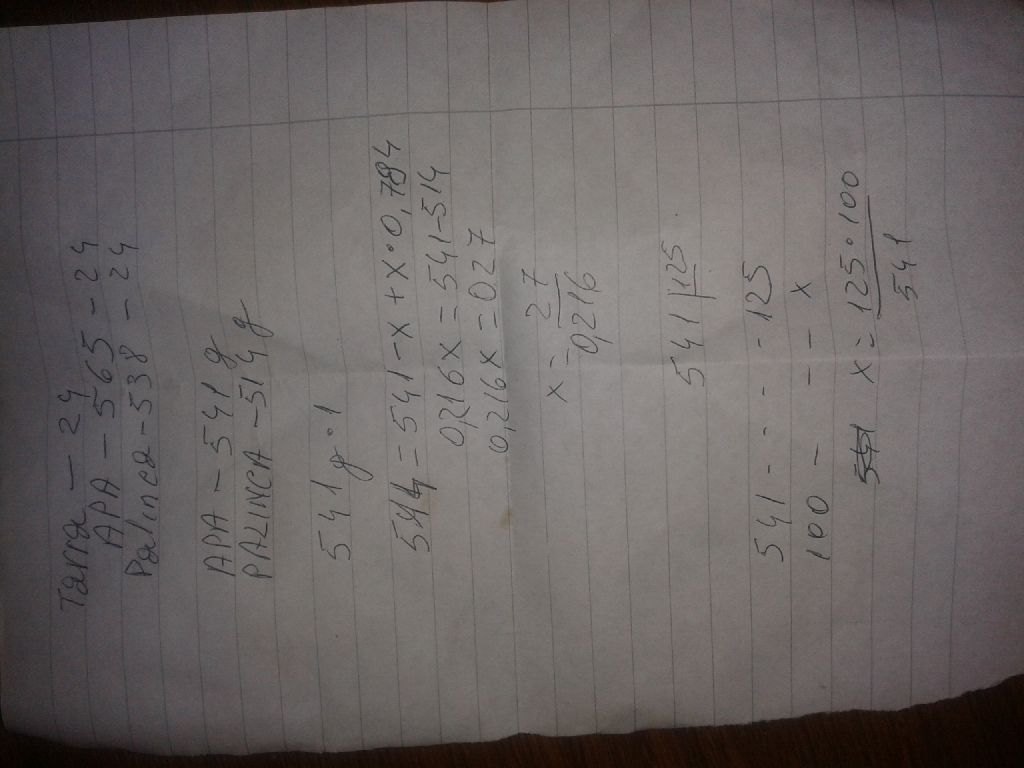 Tarra - 24
APA - 565 - 24
Palinca - 538 - 24
APA - 541 g
PALINCA - 514 g
541 g · 1
514 = 541 - x + x · 0,784
0,216x = 541 - 514
0,216x = 027
x = 27
0,216
541 | 125
541 - - - 125
100 - - - x
x = 125 · 100
541